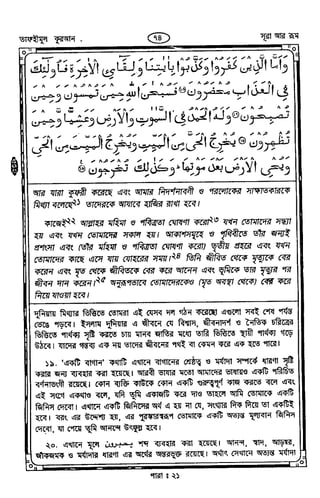 তাফহীমুল কুরআন
৭৪
সূরা আর রূম
وَأَمَّا الَّذِينَ كَفَرُوا وَكَذَّبُوا بِآيَاتِنَا وَلِقَائِ الْآخِرَةِ فَأُولَٰئِكَ
فِي الْعَذَابِ مُحْضَرُونَ ۝ فَسُبْحَانَ اللَّهِ حِينَ تُمْسُونَ وَحِينَ
تُصْبِحُونَ ۝ وَلَهُ الْحَمْدُ فِي السَّمَاوَاتِ وَالْأَرْضِ وَعَشِيًّا وَحِينَ
تُظْهِرُونَ ۝ يُخْرِجُ الْحَيَّ مِنَ الْمَيِّتِ وَيُخْرِجُ الْمَيِّتَ مِنَ الْحَيِّ
وَيُحْيِي الْأَرْضَ بَعْدَ مَوْتِهَا وَكَذَٰلِكَ تُخْرَجُونَ ۝
আর যারা কুফরী করেছে এবং আমার নিদর্শনাবলী ও পরলোকের সাক্ষাতকারকে
মিথ্যা বলেছে২১ তাদেরকে আযাবে হাজির রাখা হবে।
কাজেই২২ আল্লাহর মহিমা ও পবিত্রতা ঘোষণা করো২৩ যখন তোমাদের সন্ধ্যা
হয় এবং যখন তোমাদের সকাল হয়। আকাশসমূহে ও পৃথিবীতে তাঁর জন্যই
প্রশংসা এবং (তাঁর মহিমা ও পবিত্রতা ঘোষণা করো) তৃতীয় প্রহরে এবং যখন
তোমাদের কাছে এসে যায় যোহরের সময়।২৪ তিনি জীবিত থেকে মৃত্যুকে বের
করেন এবং মৃত থেকে জীবিতকে বের করে আনেন এবং ভূমিকে তার মৃত্যুর পর
জীবন দান করেন।২৫ অনুরূপভাবে তোমাদেরকেও (মৃত অবস্থা থেকে) বের করে
নিয়ে যাওয়া হবে।
দুনিয়ায় মিথ্যার ভিত্তিতে তোমরা এই যেসব দল গঠন করেছো এগুলো সবই শেষ পর্যন্ত
ভেঙে পড়বে। ইসলাম দুনিয়ায় এ জীবনে যে বিশ্বাস, জীবনাদর্শ ও নৈতিক চরিত্রের
ভিত্তিতে পার্থক্য সৃষ্টি করতে চায় মানব জাতির মধ্যে তারি ভিত্তিতে স্থায়ী পার্থক্য গড়ে
উঠবে। যাদের গন্তব্য এক নয় তাদের জীবনের পথই বা কেমন করে এক হতে পারে।
১৯. "একটি বাগান" কথাটি এখানে বাগানের শ্রেষ্ঠত্ব ও মর্যাদা সম্পর্কে ধারণা সৃষ্টি
করার জন্য ব্যবহার করা হয়েছে। আরবী ভাষার মতো আমাদের ভাষায়ও একটি পরিচিত
বর্ণনাভংগী রয়েছে। কোন ব্যক্তি কাউকে কোন একটি গুরুত্বপূর্ণ কাজ করতে বলে এবং
এই সংগে একথাও বলে, যদি তুমি একাজটি করে দাও তাহলে আমি তোমাকে একটি
জিনিস দেবো। এখানে একটি জিনিসের অর্থ এ হয় না যে, সংখ্যার দিক দিয়ে তা একটিই
হবে। বরং এর উদ্দেশ্য হয়, এর পুরস্কার স্বরূপ তোমাকে একটি অত্যন্ত মূল্যবান জিনিস
দেবো, যা পেয়ে তুমি আনন্দে উৎফুল্ল হবে।
২০. এখানে মূলে يُحْبَرُونَ শব্দ ব্যবহার করা হয়েছে। আনন্দ, স্বাদ, আড়ম্বর,
জাঁকজমক ও মর্যাদার ধারণা এর অর্থের অন্তরভুক্ত রয়েছে। অর্থাৎ সেখানে অত্যন্ত মর্যাদা
পারা : ২১